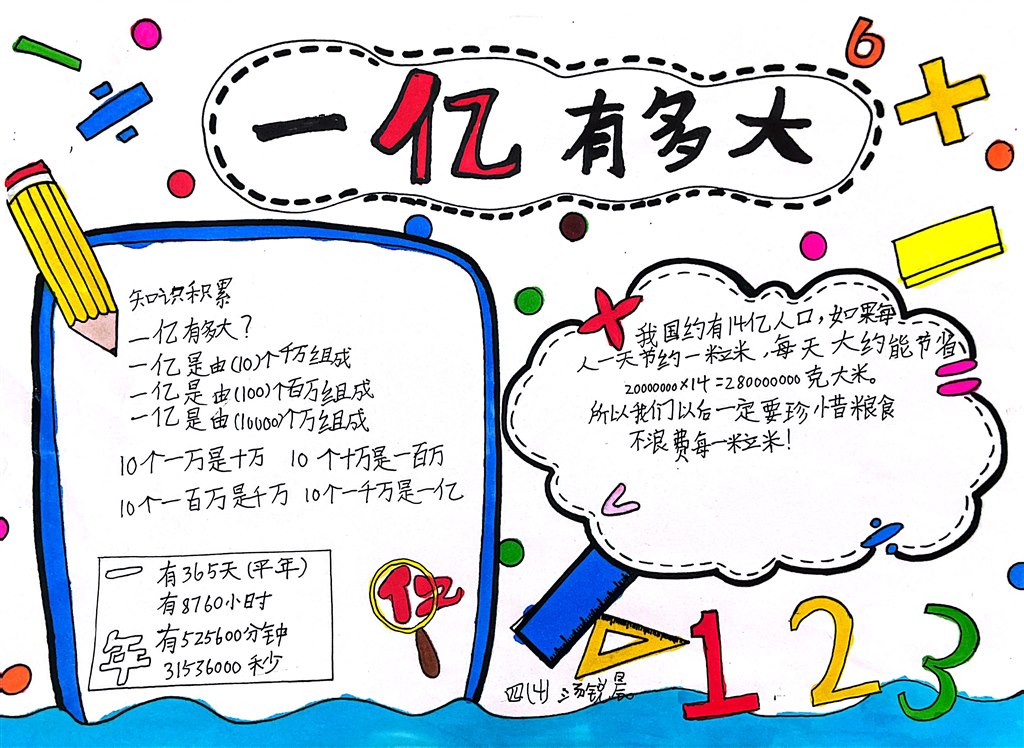 一亿有多大
6
知识积累
一亿有多大？
一亿是由(10)个千万组成
一亿是由(100)个百万组成
一亿是由(10000)个万组成
10个一万是十万 10个十万是一百万
10个一百万是千万 10个一千万是一亿
一年
有365天(平年)
有8760小时
有525600分钟
31536000秒
亿
我国约有14亿人口，如果每
人一天节约一粒米，每天大约能节省
20000000×14=280000000克大米。
所以我们以后一定要珍惜粮食
不浪费每一粒米！
四(4) 汤锐晨
1 2 3